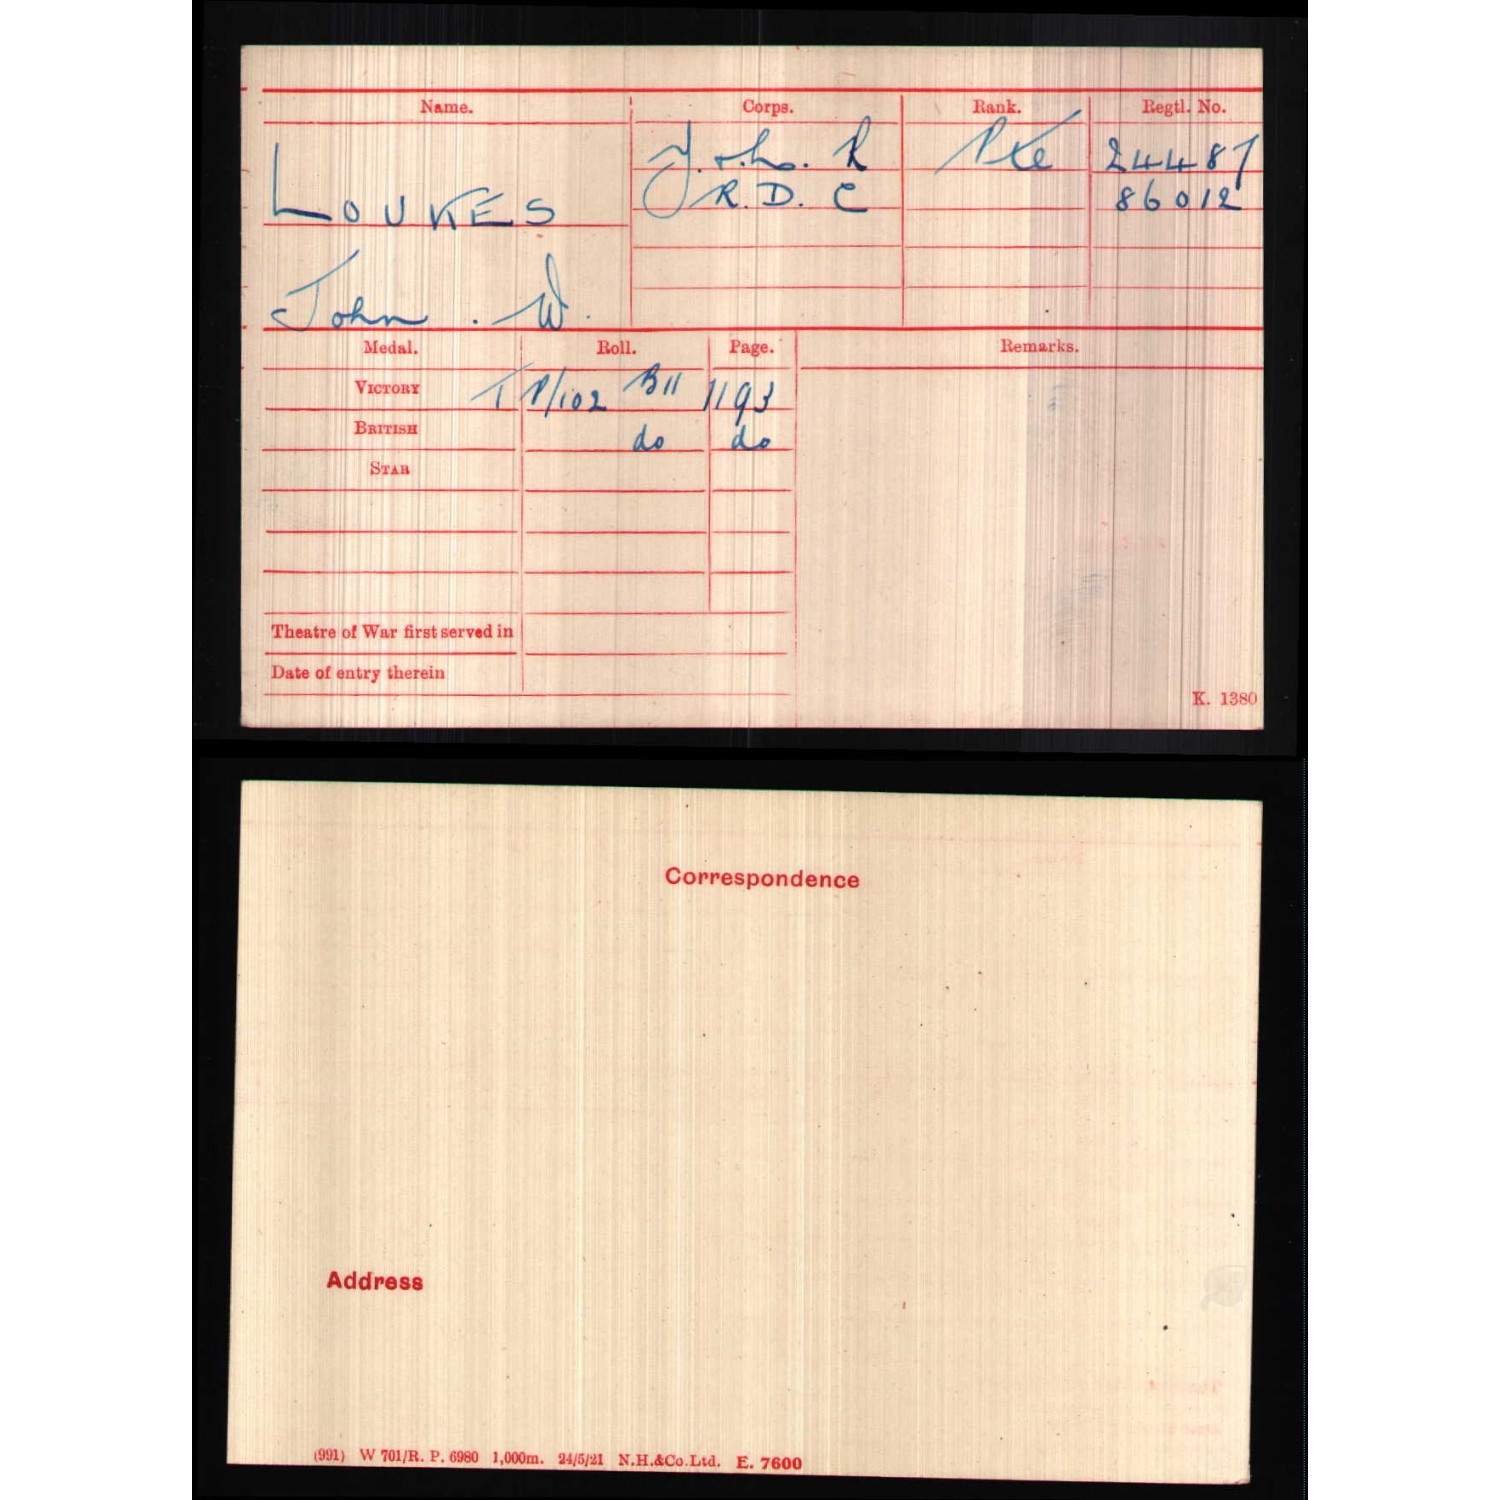 Name. Corps. Rank. Regtl. No.
Y. & L. R Pte 24487
LOUKES R.D.C 86012
John . W.
Medal. Roll. Page. Remarks.
VICTORY TP/102 B11 1193
BRITISH do do
STAR
Theatre of War first served in
Date of entry therein
K. 1380
Correspondence
Address
(991) W 701/R. P. 6980 1,000m. 24/5/21 N.H.&Co.Ltd. E. 7600